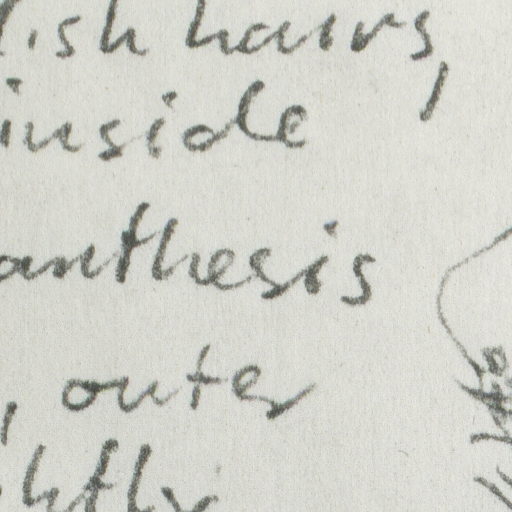 lish hairs,
inside
anthesis
, outer
ghtly